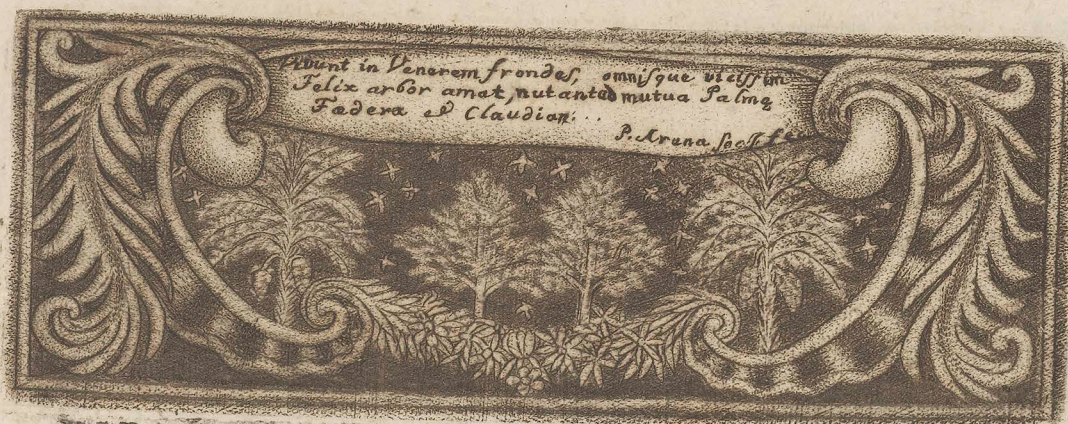 Vivunt in Venerem frondes, omnisque vicissim
Felix arbor amat, nutantes mutua Palmę
Fœdera & Claudian: . .
P. Arena